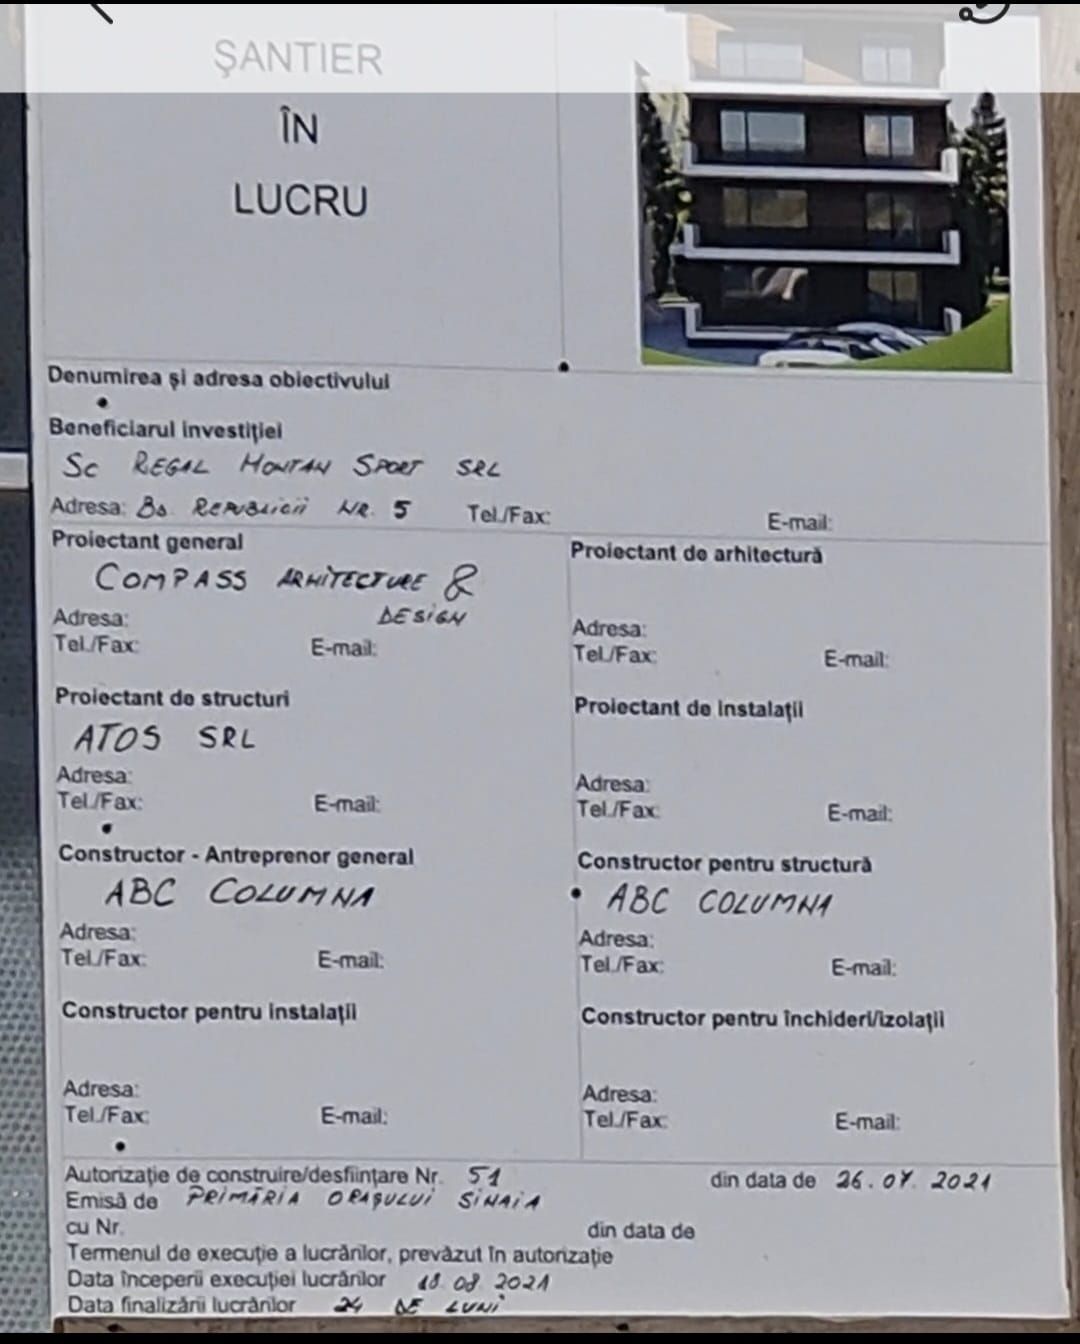 ȘANTIER
ÎN
LUCRU
Denumirea și adresa obiectivului
Beneficiarul investiției
SC REGAL MONTAN SPORT SRL
Adresa: Bd. REPUBLICII NR. 5 Tel./Fax: E-mail:
Proiectant general
COMPASS ARHITECTURE &
DESIGN
Adresa:
Tel./Fax: E-mail:
Proiectant de arhitectură
Adresa:
Tel./Fax: E-mail:
Proiectant de structuri
ATOS SRL
Adresa:
Tel./Fax: E-mail:
Proiectant de instalații
Adresa:
Tel./Fax: E-mail:
Constructor - Antreprenor general
ABC COLUMNA
Adresa:
Tel./Fax: E-mail:
Constructor pentru structură
ABC COLUMNA
Adresa:
Tel./Fax: E-mail:
Constructor pentru instalații
Adresa:
Tel./Fax: E-mail:
Constructor pentru închideri/izolații
Adresa:
Tel./Fax: E-mail:
Autorizație de construire/desființare Nr. 51 din data de 26.07.2021
Emisă de PRIMĂRIA ORAȘULUI SINAIA
cu Nr. din data de
Termenul de execuție a lucrărilor, prevăzut în autorizație
Data începerii execuției lucrărilor 18.08.2021
Data finalizării lucrărilor 24 DE LUNI